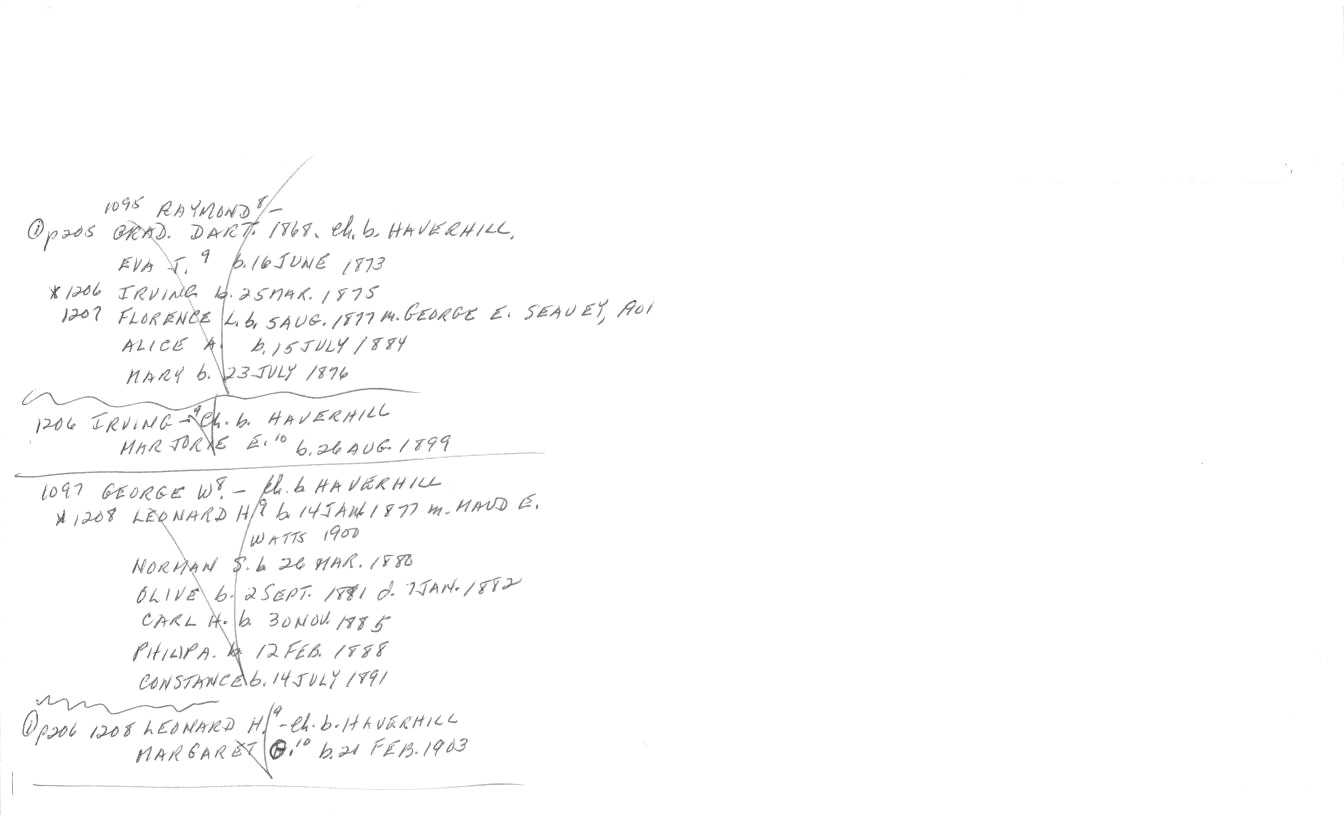 1095 RAYMOND⁸ –
① p205 GRAD. DART. 1868. Ch. b. HAVERHILL.
EVA J.⁹ b. 16 JUNE 1873
* 1206 IRVING b. 25 MAR. 1875
1207 FLORENCE L. b. 5 AUG. 1877 m. GEORGE E. SEAVEY,
ALICE A. b. 15 JULY 1884
MARY b. 23 JULY 1876
1206 IRVING –⁹ Ch. b. HAVERHILL
MARJORIE E.¹⁰ b. 26 AUG. 1899
1097 GEORGE W⁸. – Ch. b HAVERHILL
* 1208 LEONARD H⁹ b. 14 JAN. 1877 m. MAUD E.
WATTS 1900
NORMAN S. b 26 MAR. 1880
OLIVE b. 2 SEPT. 1881 d. 7 JAN. 1882
CARL H. b. 30 NOV 1885
PHILIP A. b. 12 FEB. 1888
CONSTANCE b. 14 JULY 1891
① p206 1208 LEONARD H.⁹ – Ch. b. HAVERHILL
MARGARET .¹⁰ b. 21 FEB. 1903